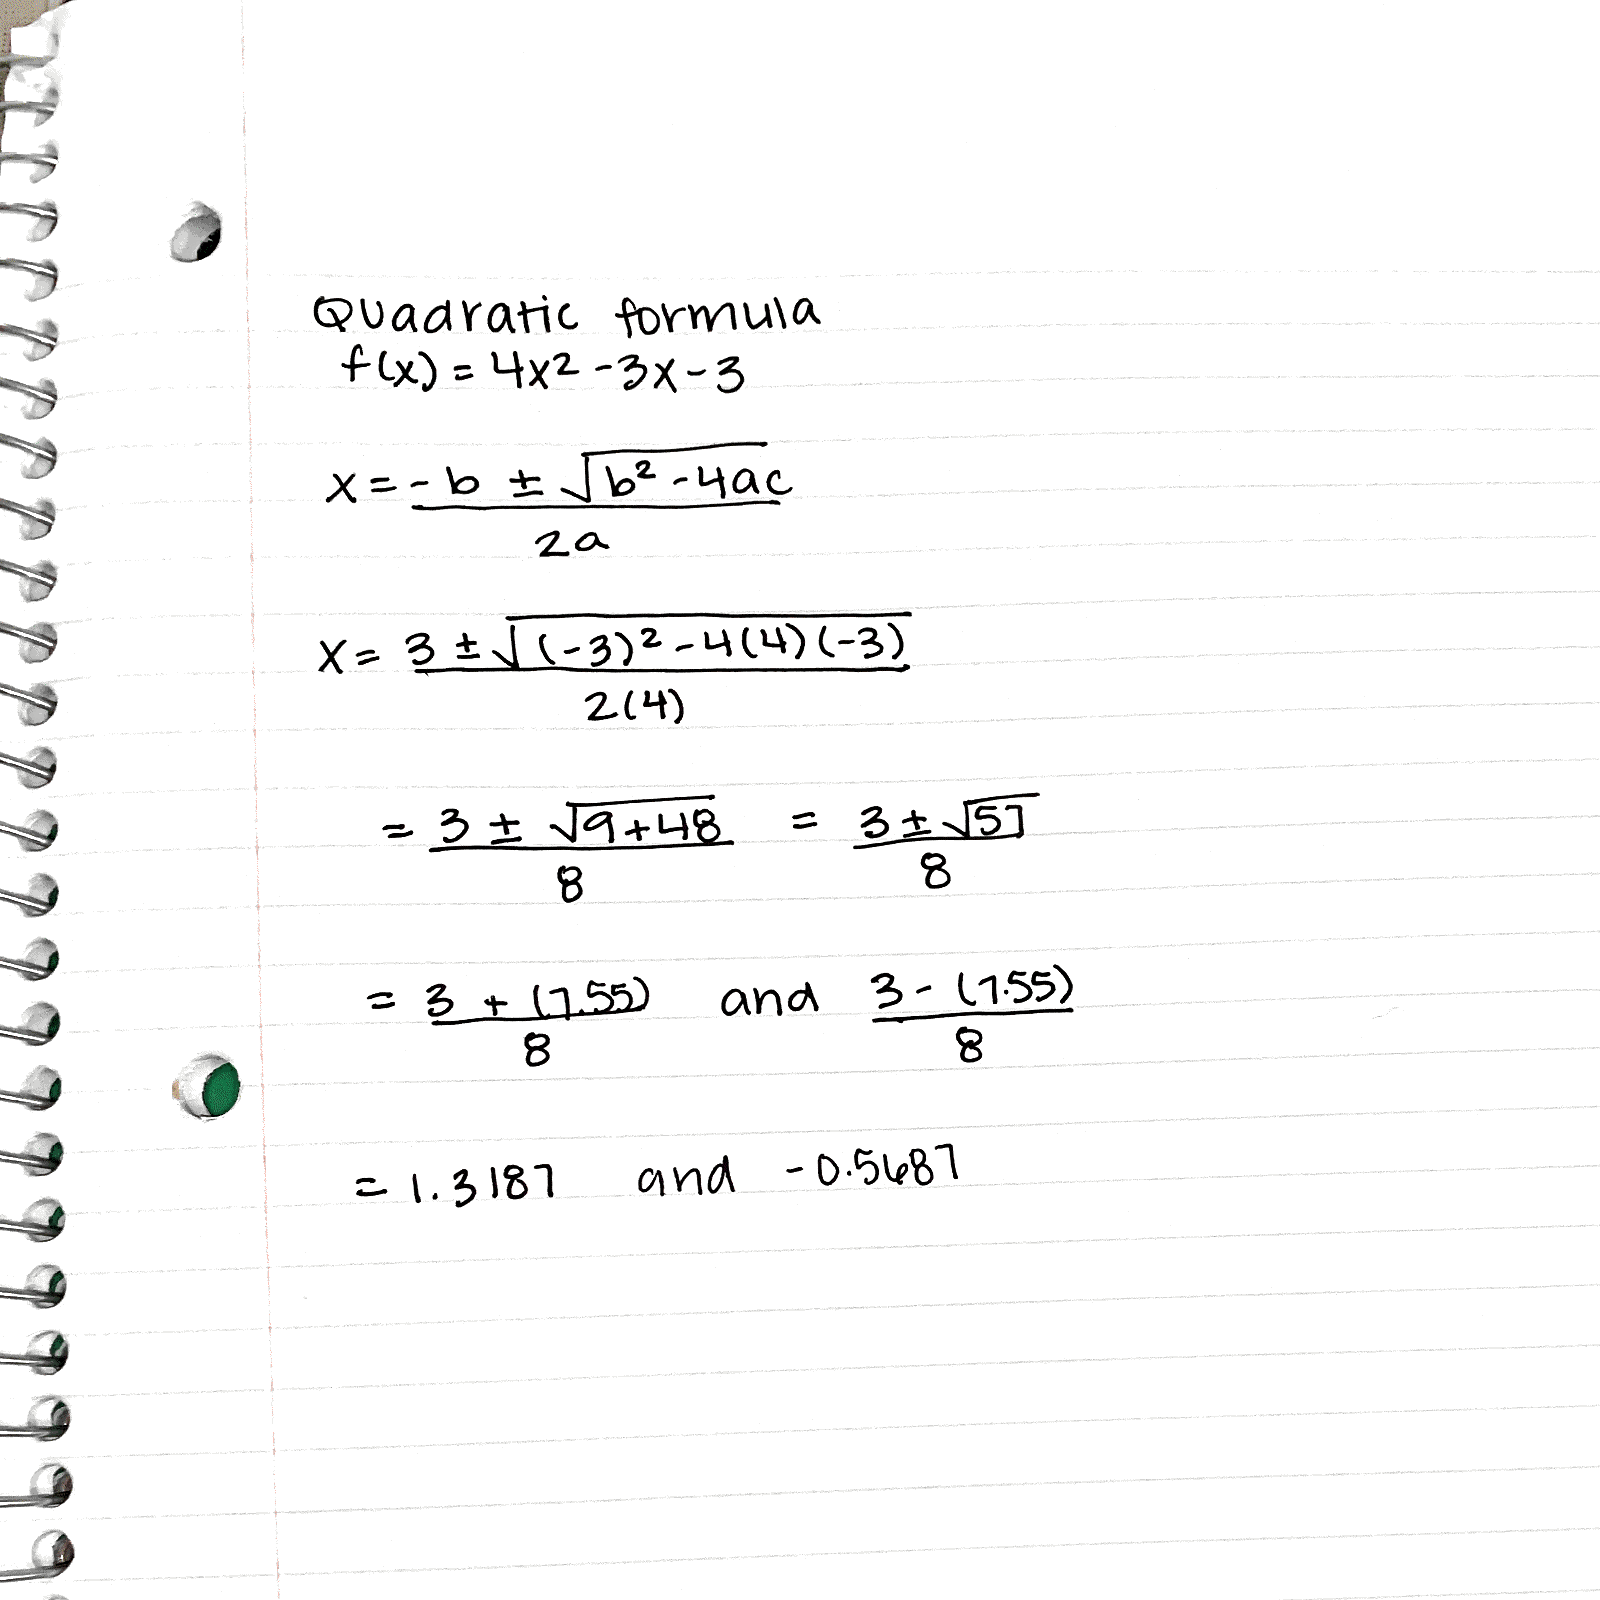 Quadratic formula
f(x) = 4x² - 3x - 3
x = -b ± √(b² - 4ac)
2a
x = 3 ± √((-3)² - 4(4)(-3))
2(4)
= 3 ± √(9+48) = 3 ± √57
8 8
= 3 + (7.55) and 3 - (7.55)
8 8
= 1.3187 and -0.5687